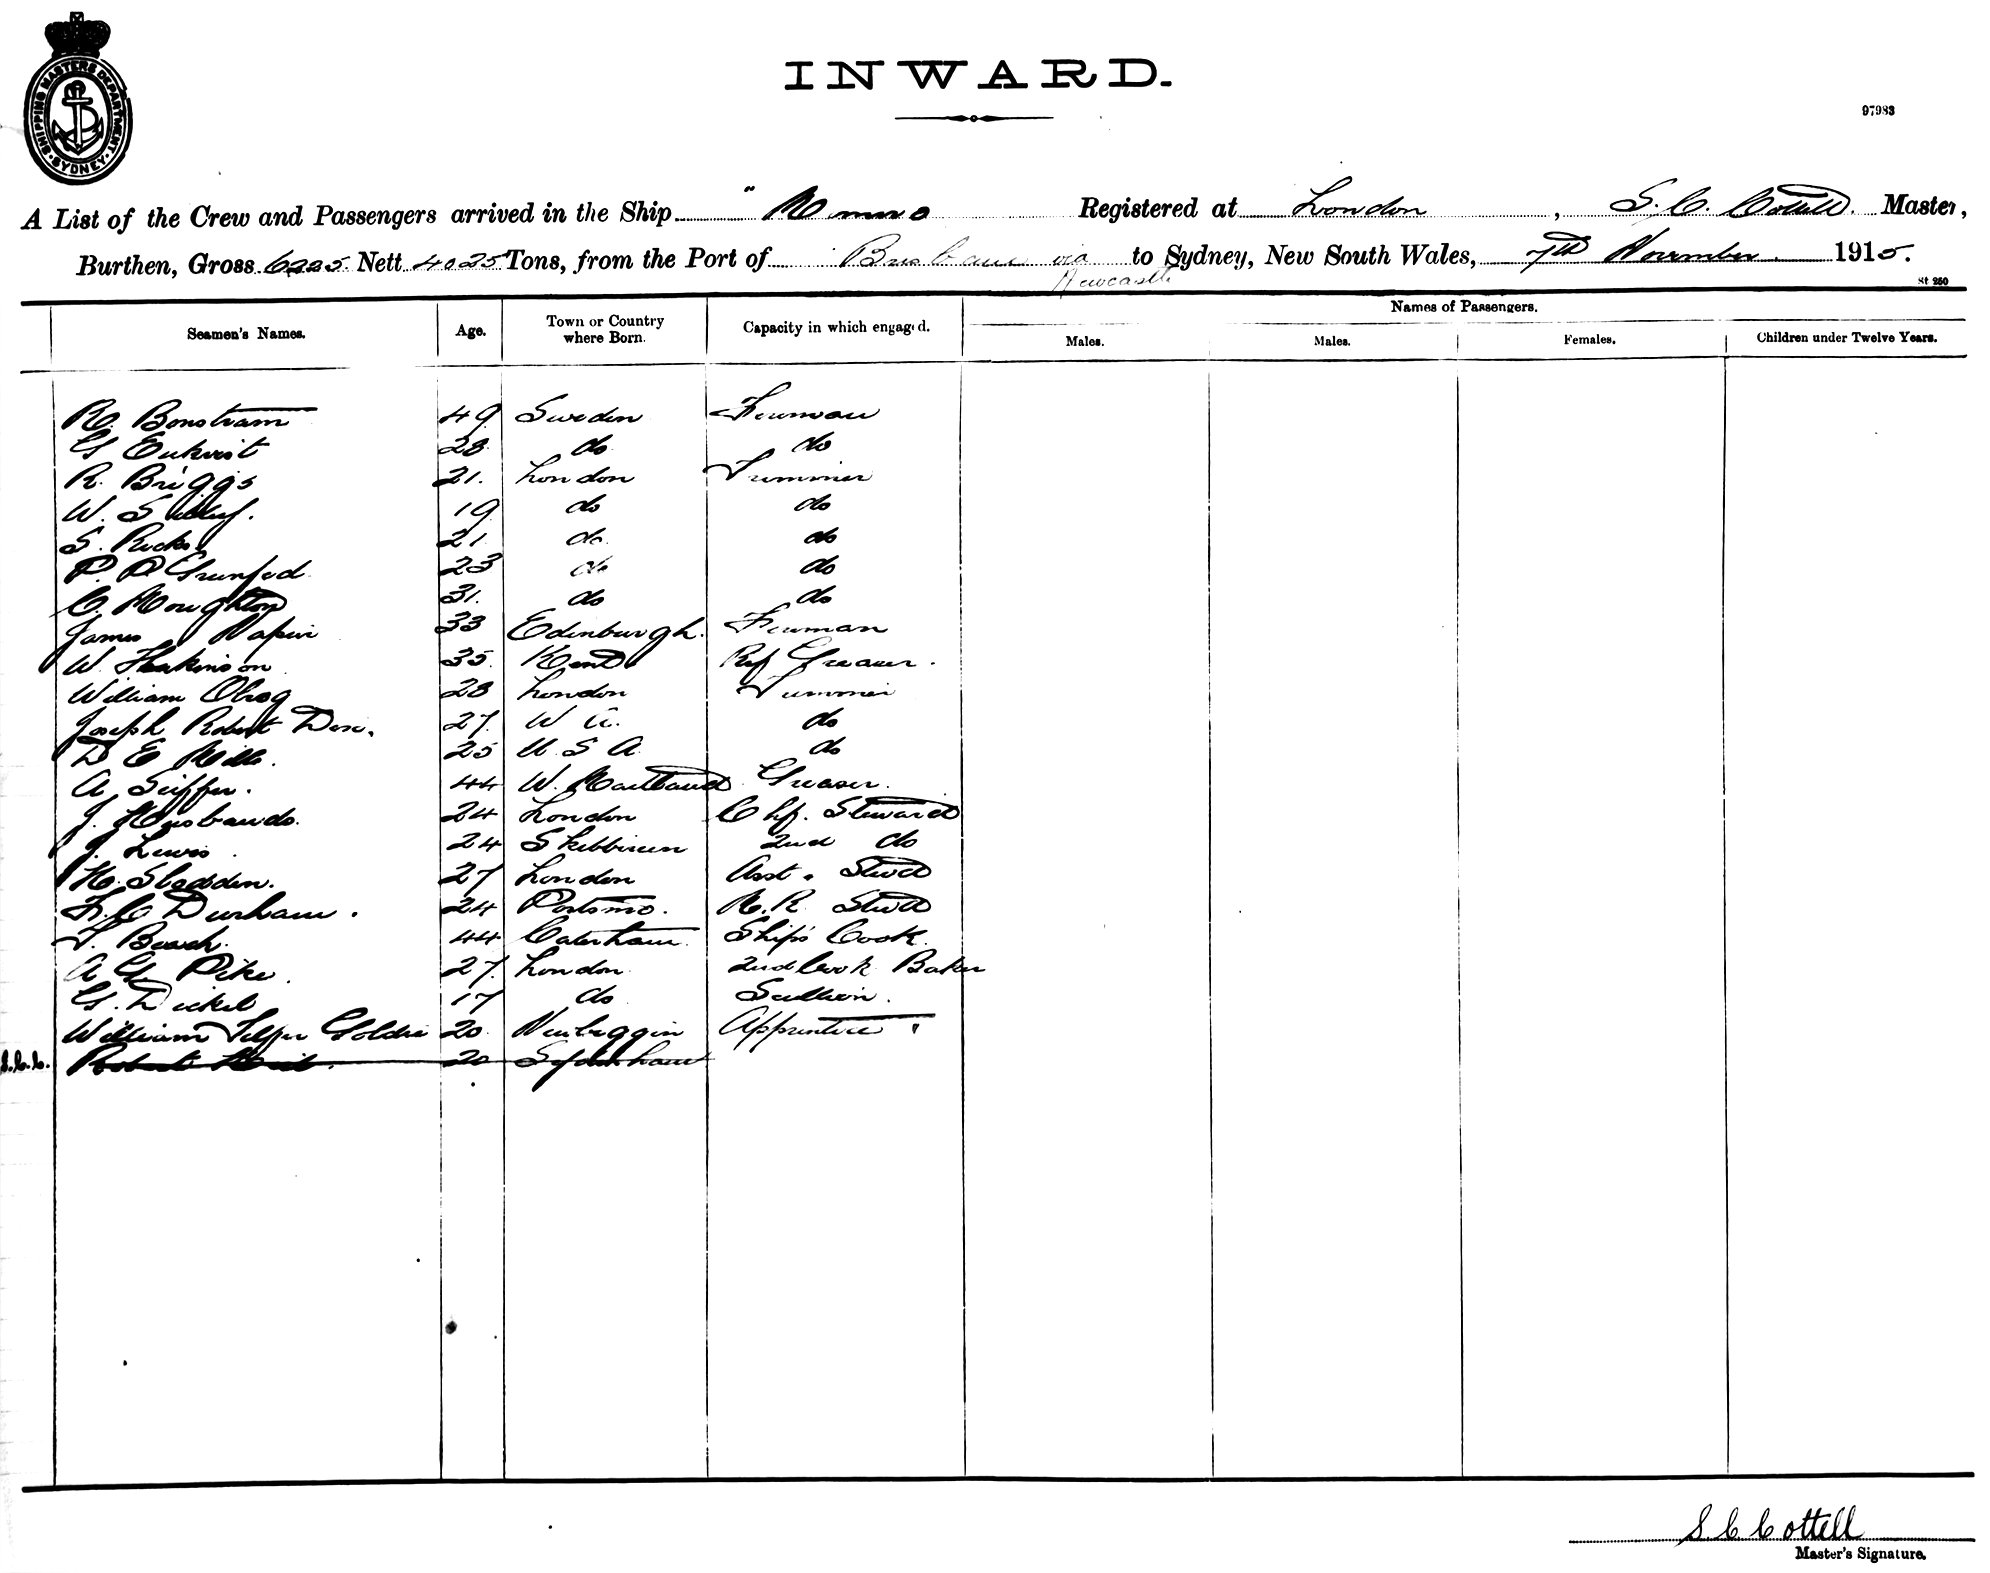 SHIPPING MASTERS DEPARTMENT. SYDNEY.
INWARD.
97983
A List of the Crew and Passengers arrived in the Ship " Registered at London, S. C. Cottell. Master,
Burthen, Gross 6225. Nett 4025 Tons, from the Port of Brisbane via Newcastle to Sydney, New South Wales, 7th November 1915.
St 250
Seamen's Names. Age. Town or Country where Born. Capacity in which engaged. Names of Passengers.
Males. Males. Females. Children under Twelve Years.
R. Bonstram 49 Sweden Fireman
G 28 do do
R. Briggs 21. London Trimmer
W. 19 do do
S. Ricks 21 do. do
P. P. 23 do do
C. Houghton 31. do do
James Napier 33 Edinburgh. Fireman
W. 35. Kent Ref Greaser.
William 28 London Trimmer
Joseph Robert 27. W A. do
D E 25 U S A do
A. 44 W. Maitland Greaser.
J. Husbands. 24 London Chf. Steward
J. Lewis. 24 Skibbireen 2nd do
H. Sladden. 27 London Asst. Stwd
F. C Durham. 24 Portsmo. Stwd
T. Beach. 44 Caterham. Ship's Cook.
A G Pike. 27. London. 2nd Cook Baker
G. Dickel 17 do Scullion.
William Telfer Goldie 20 Newbiggin Apprentice "
S.C.C. Robert 20 Sydenham
S C Cottell
Master's Signature.